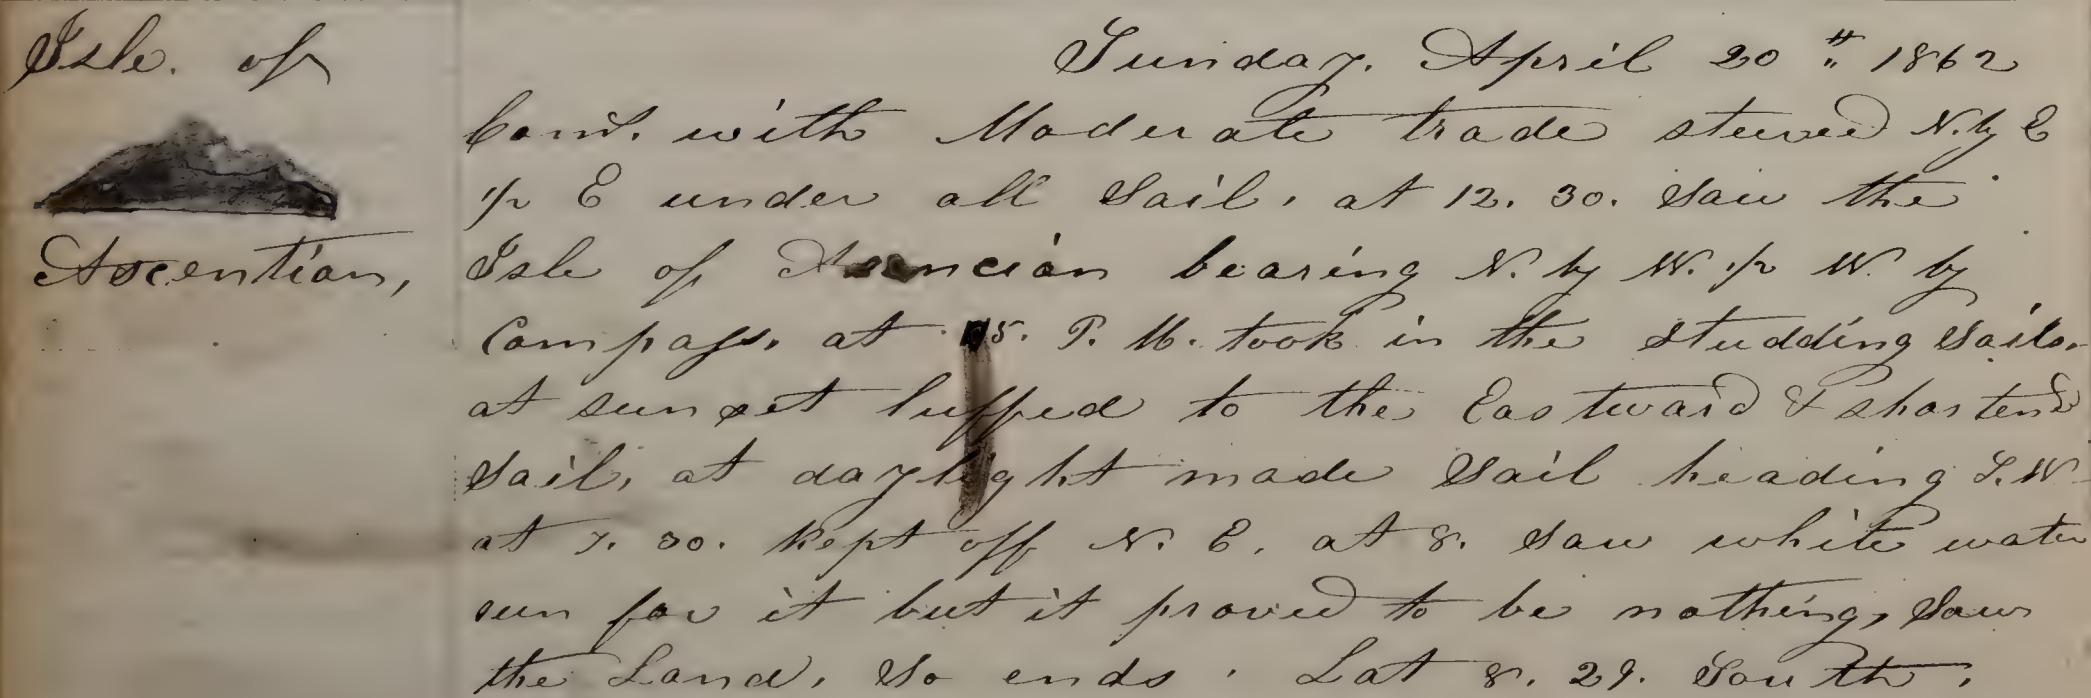 Isle. of
Ascention,
Sunday. April 20th 1862
Comd. with Moderate trade steered N. by E
1/2 E under all Sail, at 12. 30. Saw the
Isle of bearing N. by W. 1/2 W. by
Compass, at 5. P. M. took in the studding Sails.
at sunset luffed to the Eastward & shortend
Sail, at daylight made Sail heading S. W
at 7. 30. Kept off N. E. at 8. Saw white water
run for it but it proved to be nothing, Saw
the Land, So ends. Lat 8. 29. South.